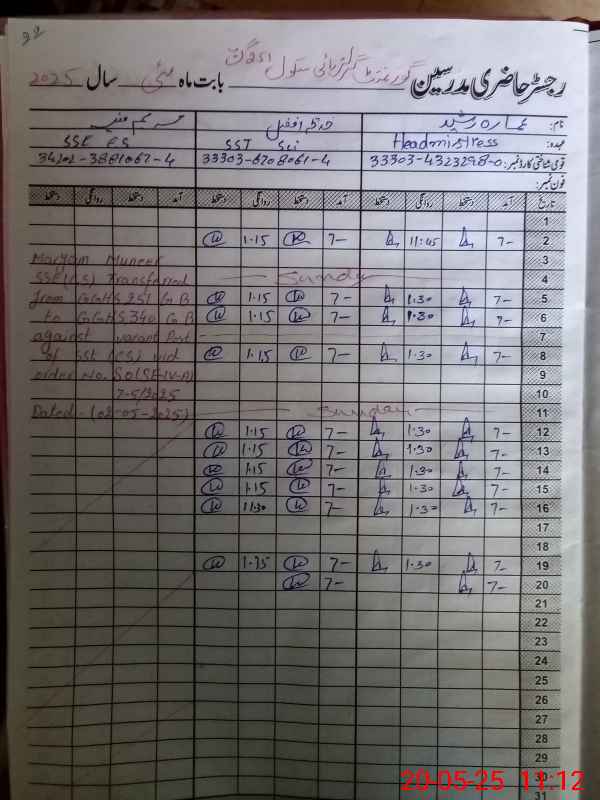 22
رجسٹر حاضری مدرسین گورنمنٹ گرلز ہائی سکول 251 گ ب بابت ماہ مئی سال 2025
نام: عمارہ رشید
عہدہ: Headmistress SST Sci SSE CS
قومی شناختی کارڈ نمبر: 33303-4323298-0 33303-6708061-4 34202-3881067-4
فون نمبر:
تاریخ آمد دستخط روانگی دستخط آمد دستخط روانگی دستخط آمد دستخط روانگی دستخط
1
2 7- 11:45 7- 1.15
3
Maryam Muneer
4 Sunday
SSE (CS) Transferred
5 7- 1.30 7- 1.15
from GGHS 251 G B
6 7- 1.30 7- 1.15
to GGHS 340 G B
7
against vacant Post
8 7- 1.30 7- 1.15
of SST (CS) vid
9
order No. SO(SE-IV-A)
10
7-5/2025
11 Sunday
Dated - (02-05-2025)
12 7- 1.30 7- 1.15
13 7- 1.30 7- 1.15
14 7- 1.30 7- 1.15
15 7- 1.30 7- 1.15
16 7- 1.30 7- 11.30
17
18
19 7- 1.30 7- 1.15
20 7- 7-
21
22
23
24
25
26
27
28
29
30
31
20-05-25 11:12